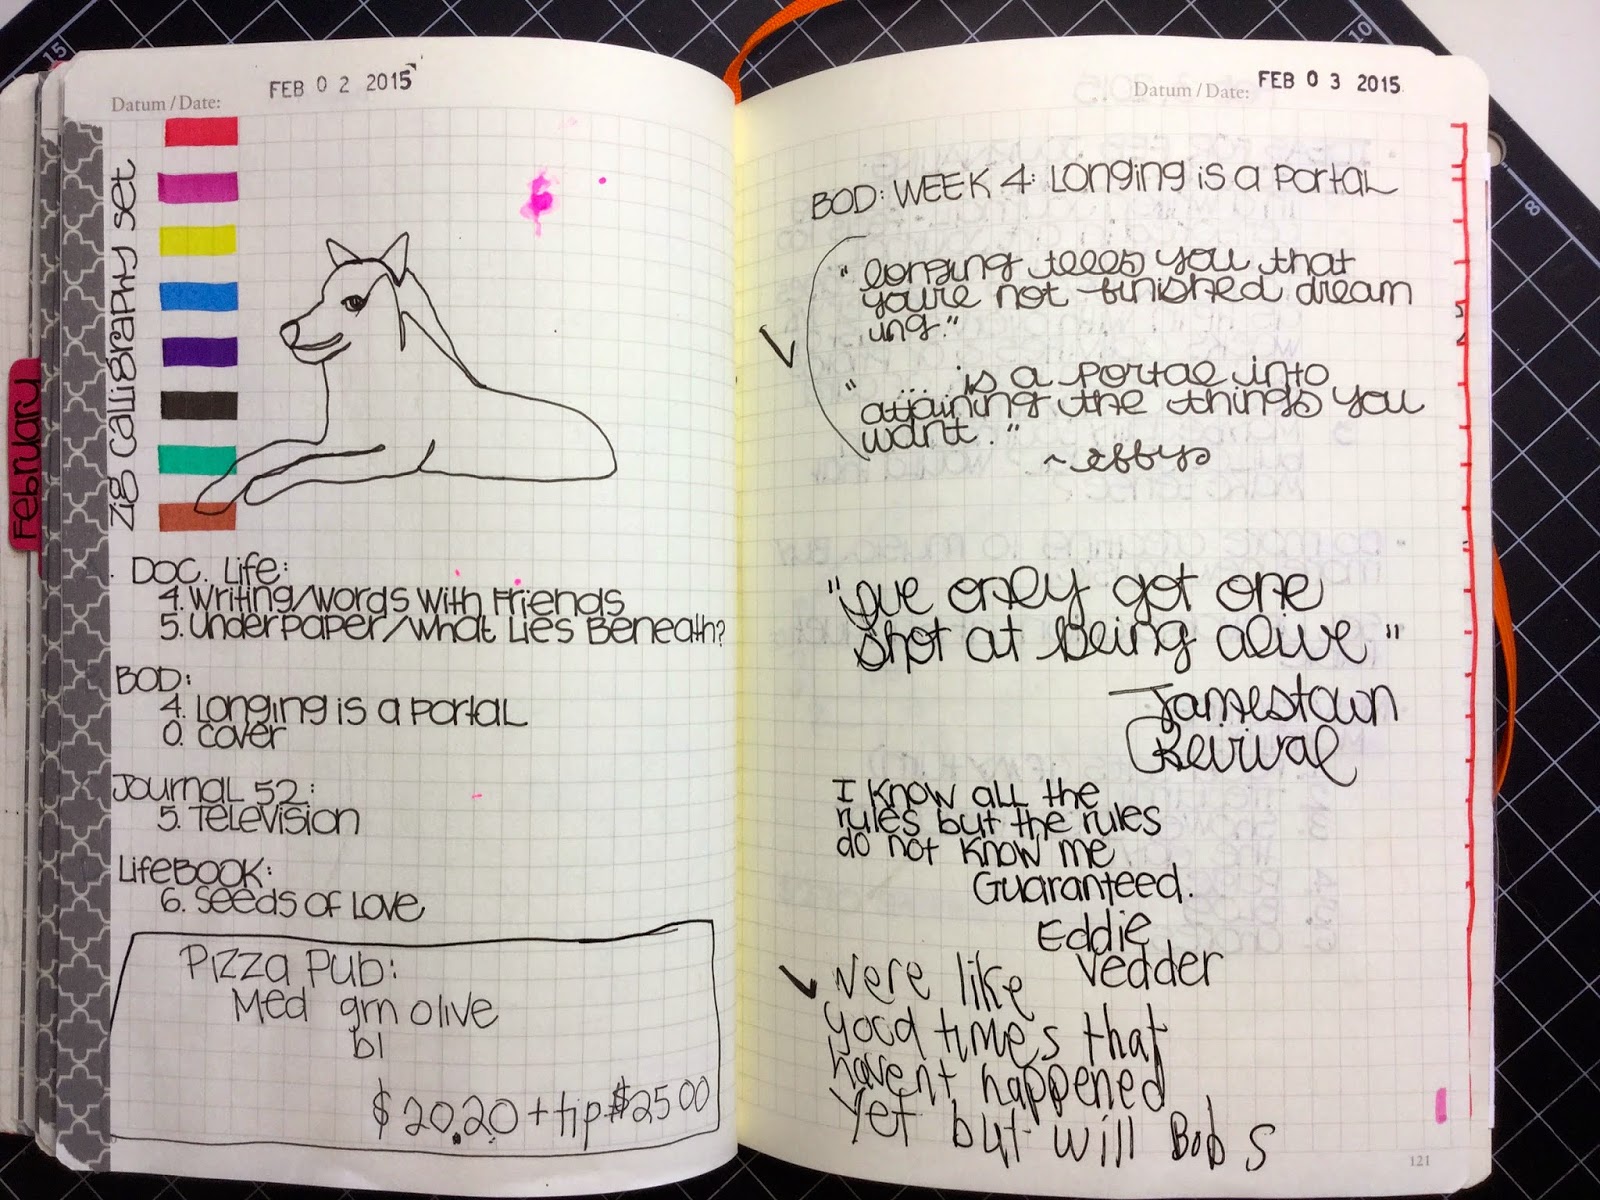 February
Datum / Date:
FEB 02 2015
Zig Calligraphy Set
Doc. Life:
4. Writing/Words with Friends
5. Underpaper/What Lies Beneath?
BOD:
4. Longing is a Portal
0. Cover
Journal 52:
5. Television
LifeBook:
6. Seeds of Love
Pizza Pub:
Med grn olive
bl
$20.20 + tip $25.00
15
10
8
Datum / Date:
FEB 03 2015
BOD: WEEK 4: Longing is a Portal
"longing tells you that
you're not finished dream
ing."
"... is a portal into
attaining the things you
want."
~effys
"ive only got one
shot at being alive"
Jamestown
Revival
I know all the
rules but the rules
do not know me
Guaranteed.
Eddie
Vedder
Were like
good times that
havent happened
Yet but will Bob S
121